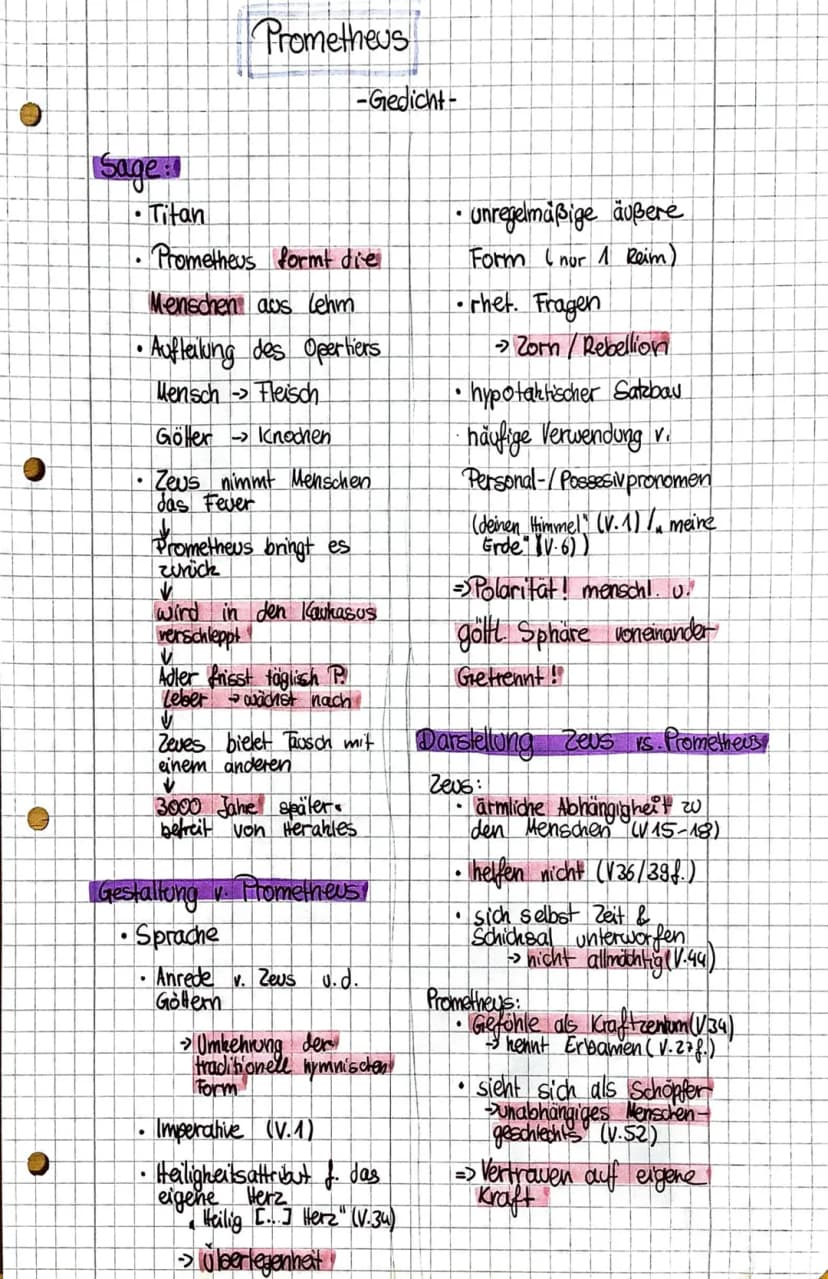 Prometheus
-Gedicht-
Sage:
• Titan
• Prometheus formt die
Menschen aus Lehm
• Aufteilung des Opertiers
Mensch → Fleisch
Götter → Knochen
• Zeus nimmt Menschen
das Feuer
↓
Prometheus bringt es
zurück
↓
wird in den Kaukasus
verschleppt
↓
Adler frisst täglich P.
Leber → wächst nach
↓
Zeues bietet Tausch mit
einem anderen
↓
3000 Jahe später
befreit von Herakles
Gestaltung v. Prometheus
• Sprache
• Anrede v. Zeus u.d.
Göttern
→ Umkehrung der
traditionell hymnischen
Form
• Imperative (V.1)
• Heiligheitsattribut f. das
eigene Herz
„Heilig [...] Herz" (V.34)
→ Überlegenheit
• unregelmäßige äußere
Form (nur 1 Reim)
• rhet. Fragen
→ Zorn / Rebellion
• hypotaktischer Satzbau
· häufige Verwendung v.
Personal-/Possesivpronomen
(deinen Himmel" (V.1) /„ meine
Erde" (V.6))
=> Polarität! menschl. u.
göttl. Sphäre voneinander
Getrennt!
Darstellung Zeus vs. Prometheus
Zeus:
• ärmliche Abhängigkeit zu
den Menschen (V 15-18)
• helfen nicht (V36/38f.)
• sich selbst Zeit &
Schicksal unterworfen
→ nicht allmächtig (V.44)
Prometheus:
• Gefühle als Kraftzentum (V34)
→ kennt Erbamen (V.27f.)
• sieht sich als Schöpfer
→ unabhängiges Menschen-
geschlechts (V.52)
=> Vertrauen auf eigene
Kraft